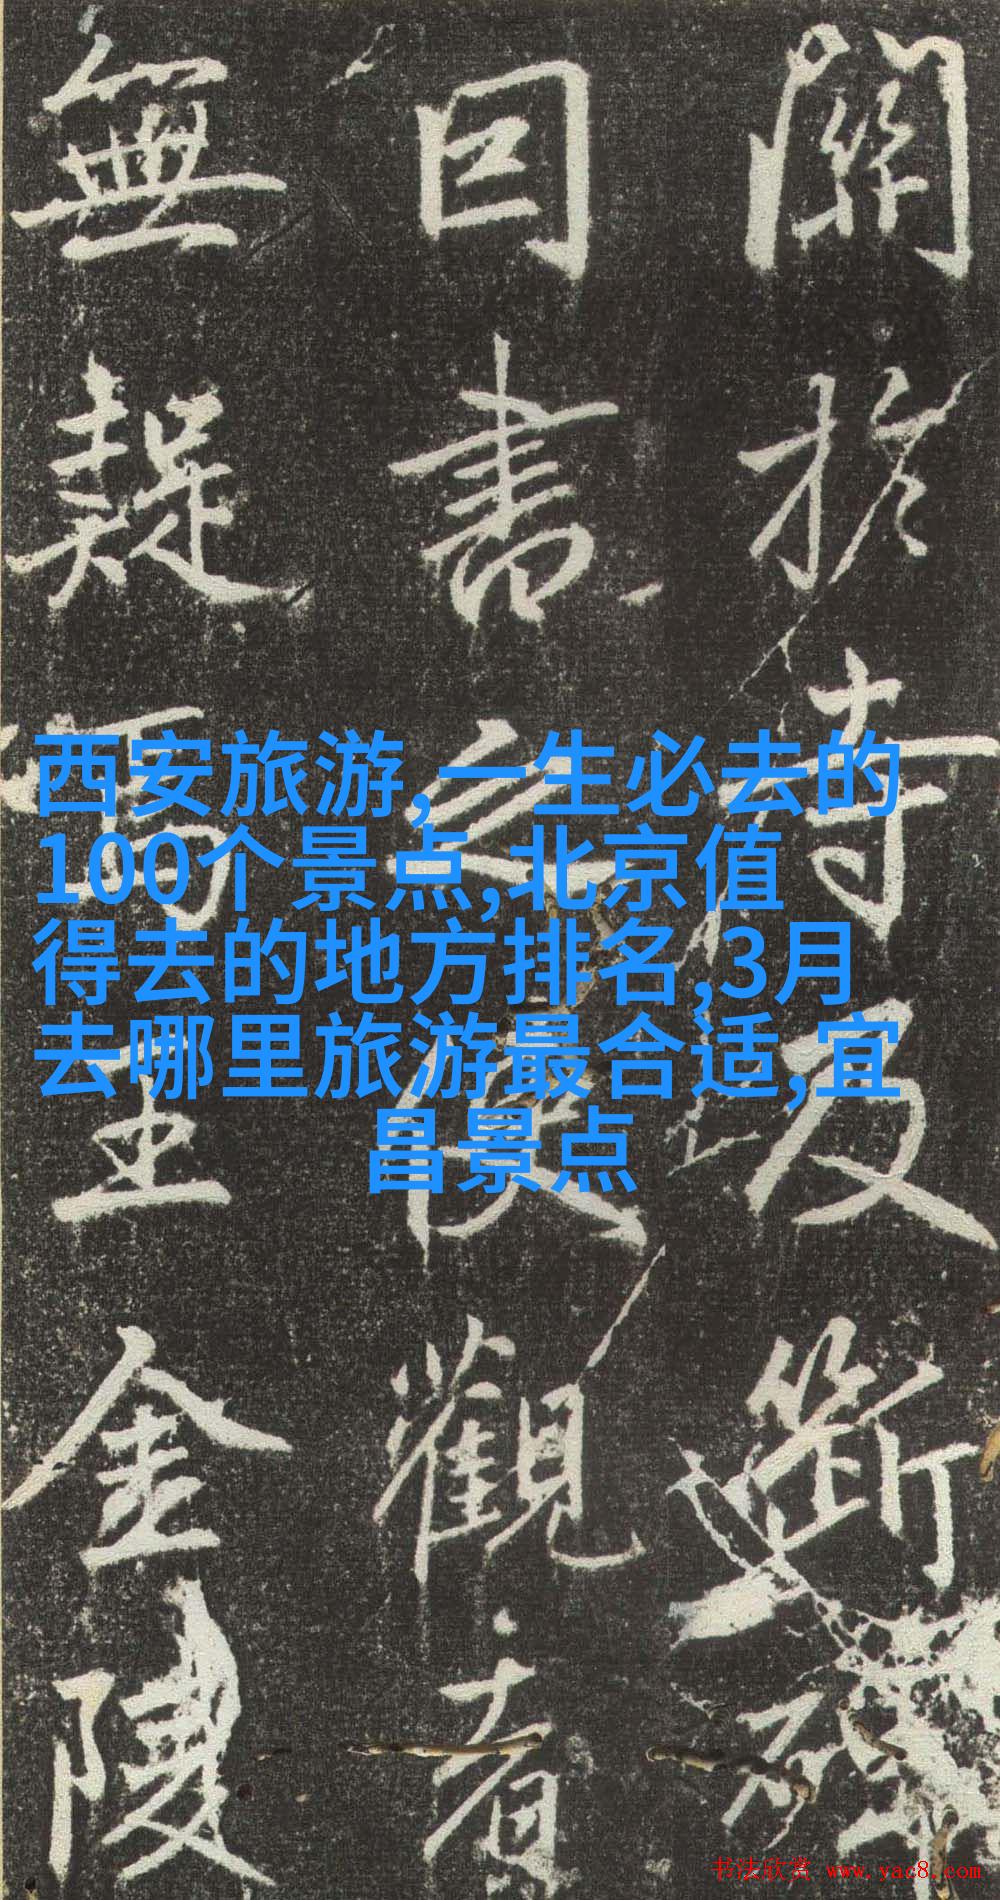 關於持及斷碑
日書之使觀者
無疑焉王金陵
西安旅游,一生必去的
100个景点,北京值
得去的地方排名,3月
去哪里旅游最合适,宜
昌景点
书法欣赏 www.yac8.com